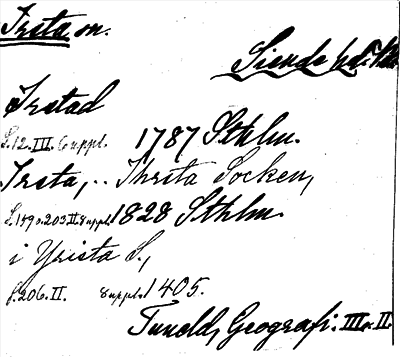 Irsta sn.
Siende hd.
Irstad
S.12.III. 6 uppl. 1787 Sthlm.
Irsta, .. Thrsta Socken,
S.159 o.203 II. 8 uppl. 1828 Sthlm.
i Yrista S.,
S.206.II. 8 uppl. 1405.
Tuneld, Geografi. III o. II.